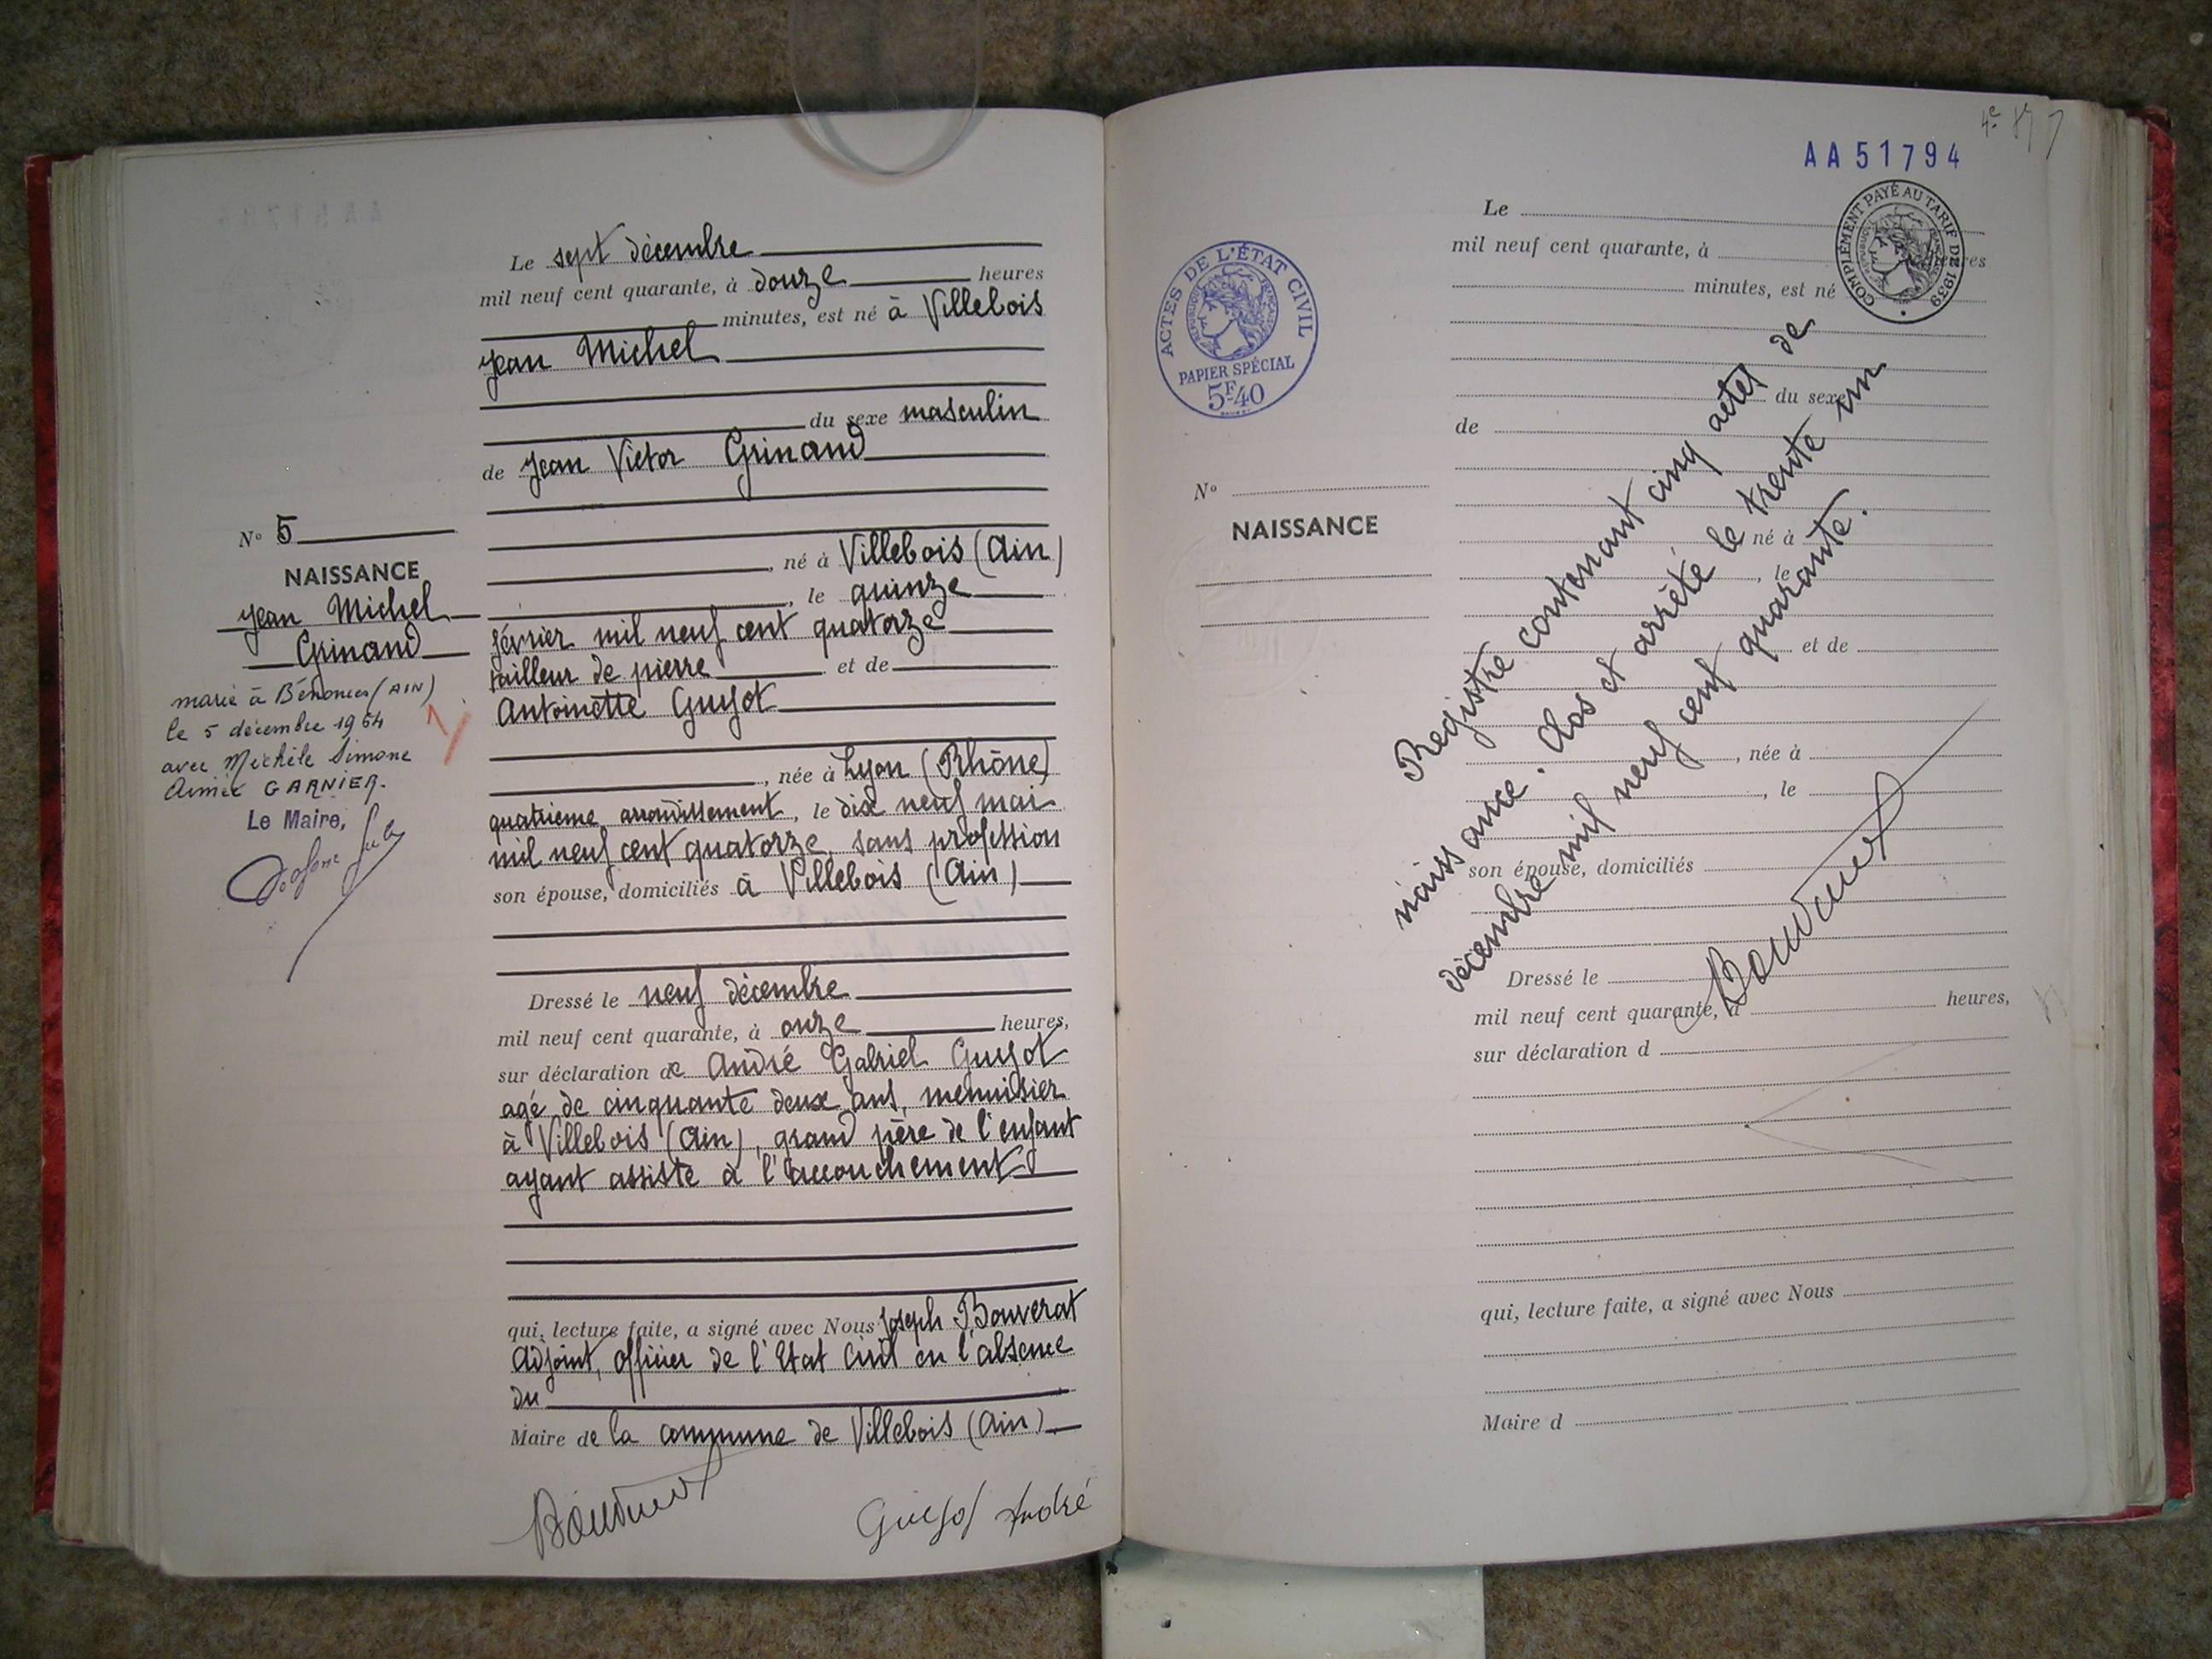 Le sept décembre
mil neuf cent quarante, à douze heures
minutes, est né à Villebois
Jean Michel
du sexe masculin
de Jean Victor Grinand
né à Villebois (Ain)
, le quinze
février mil neuf cent quatorze
tailleur de pierre et de
Antoinette Guyot
, née à Lyon (Rhône)
quatrième arrondissement, le dix neuf mai
mil neuf cent quatorze, sans profession
son épouse, domiciliés à Villebois (Ain)
Dressé le neuf décembre
mil neuf cent quarante, à onze heures,
sur déclaration de André Gabriel Guyot
agé de cinquante deux ans, menuisier
à Villebois (Ain), grand père de l'enfant
ayant assisté à l'accouchement
qui, lecture faite, a signé avec Nous Joseph Bouverat
Adjoint, officier de l'Etat Civil en l'absence
du
Maire de la commune de Villebois (Ain)
Guyot André
No 5
NAISSANCE
Jean Michel
Grinand
marié à Bénonces (AIN)
le 5 décembre 1964
avec Michèle Simone
Aimée GARNIER.
Le Maire,
AA51794
COMPLÉMENT PAYÉ AU TARIF DE 1939
ACTES DE L'ÉTAT CIVIL
RÉPUBLIQUE FRANÇAISE
PAPIER SPÉCIAL
5F40
No
NAISSANCE
Le
mil neuf cent quarante, à heures
minutes, est né
du sexe
de
né à
, le
et de
, née à
, le
son épouse, domiciliés
Dressé le
mil neuf cent quarante, à heures,
sur déclaration d
qui, lecture faite, a signé avec Nous
Maire d
Registre contenant cinq actes de
naissance. Clos et arrêté le trente un
décembre mil neuf cent quarante.